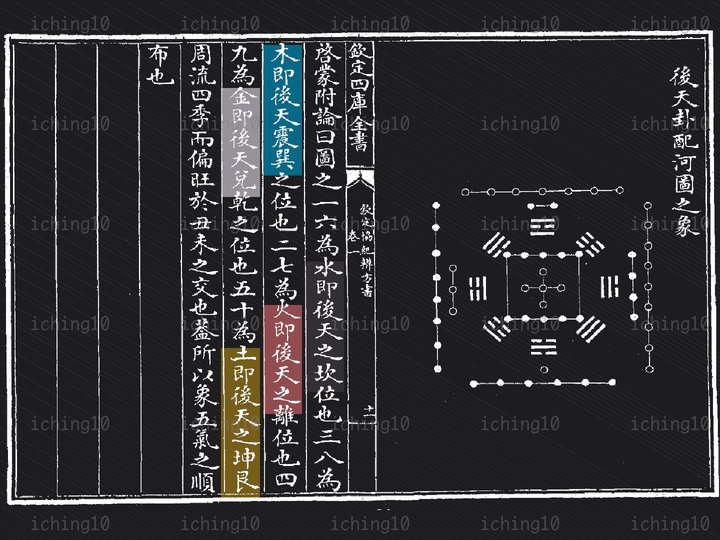 後天卦配河圖之象
欽定四庫全書
欽定協紀辨方書
卷一
十一
啓蒙附論曰圖之一六為水即後天之坎位也三八為
木即後天震巽之位也二七為火即後天之離位也四
九為金即後天兌乾之位也五十為土即後天之坤艮
周流四季而偏旺於丑未之交也葢所以象五氣之順
布也
iching10 iching10 iching10 iching10 iching10
iching10 iching10 iching10 iching10 iching10
iching10 iching10 iching10 iching10 iching10
iching10 iching10 iching10 iching10 iching10
iching10 iching10 iching10 iching10 iching10
iching10 iching10 iching10 iching10 iching10